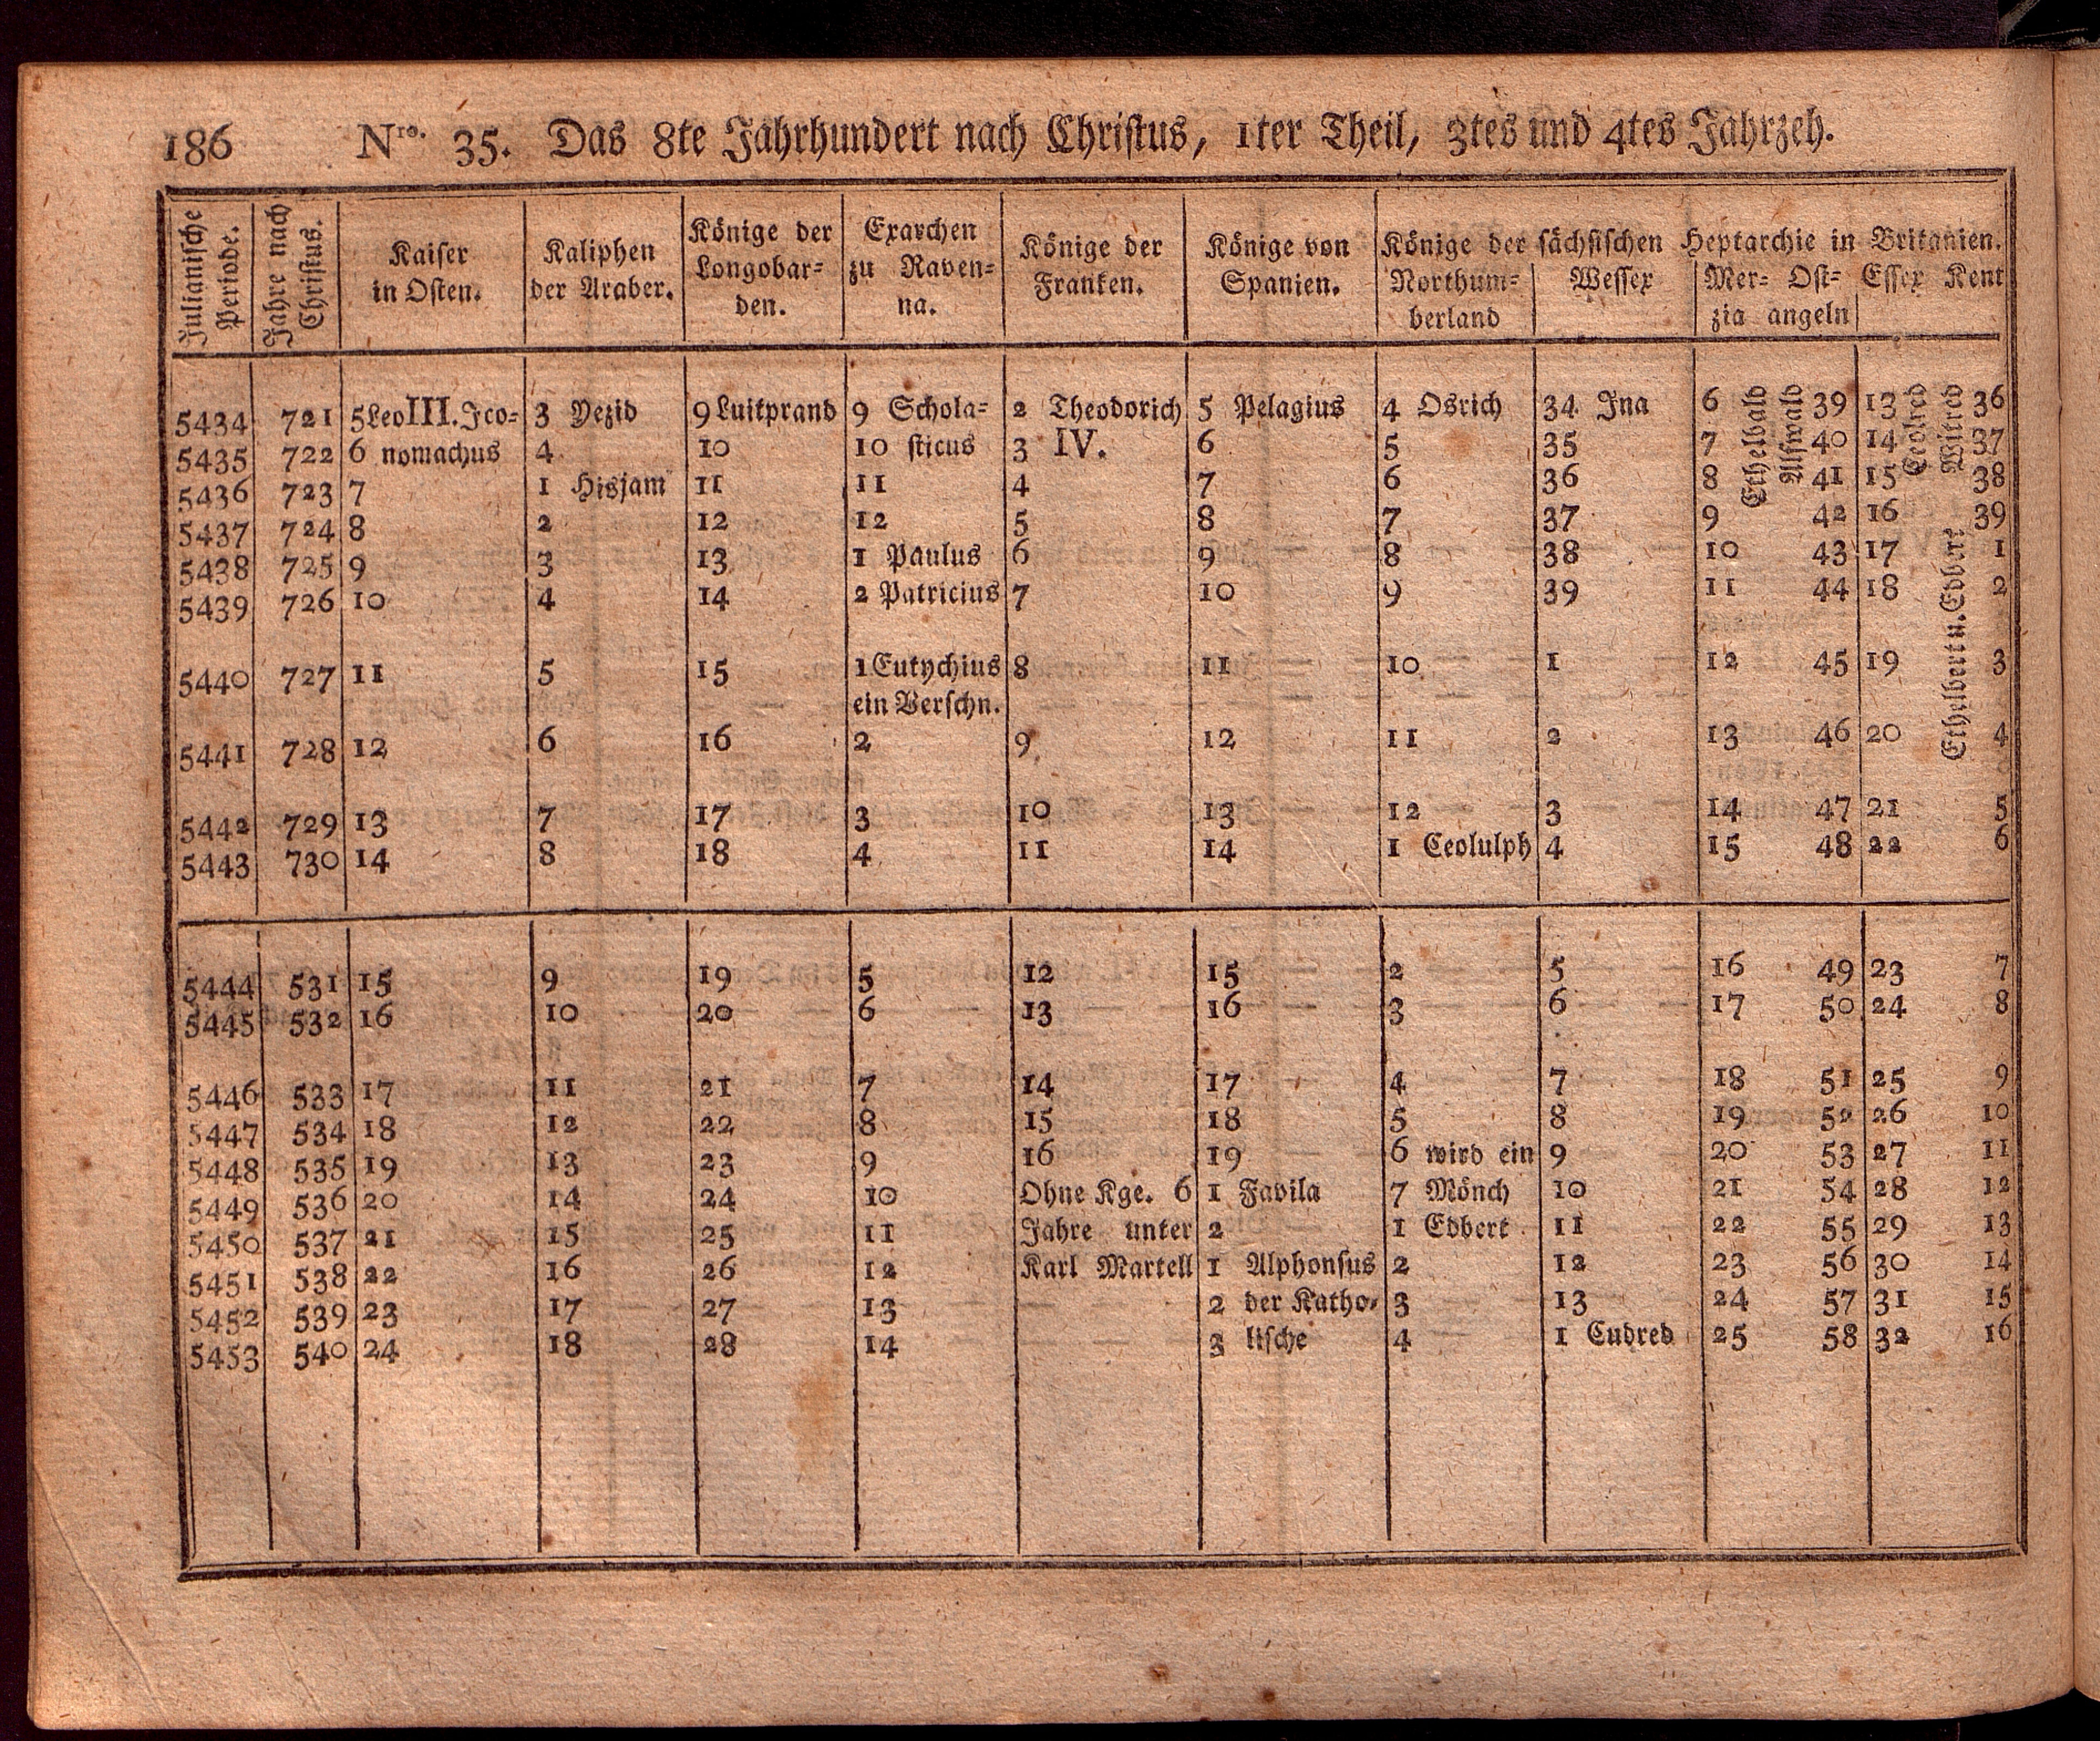 186 Nro. 35. Das 8te Jahrhundert nach Christus, 1ter Theil, 3tes und 4tes Jahrzeh.
Julianische Periode. Jahre nach Christus. Kaiser in Osten. Kaliphen der Araber. Könige der Longobar= den. Exarchen zu Raven= na. Könige der Franken. Könige von Spanien. Könige der sächsischen Heptarchie in Britanien.
Northum= berland Wessex Mer= zia Ost= angeln Essex Kent
5434 721 5 Leo III. Ico= 3 Yezid 9 Luitprand 9 Schola= 2 Theodorich 5 Pelagius 4 Osrich 34 Ina 6 Ethelbald Alfwald 39 13 Ceolred Witred 36
5435 722 6 nomachus 4 10 10 sticus 3 IV. 6 5 35 7 40 14 37
5436 723 7 1 Hisjam 11 11 4 7 6 36 8 41 15 38
5437 724 8 2 12 12 5 8 7 37 9 42 16 39
5438 725 9 3 13 1 Paulus 6 9 8 38 10 43 17 Ethelbert u. Edbert 1
5439 726 10 4 14 2 Patricius 7 10 9 39 11 44 18 2
5440 727 11 5 15 1 Eutychius 8 11 10 1 12 45 19 3
ein Verschn.
5441 728 12 6 16 2 9 12 11 2 13 46 20 4
5442 729 13 7 17 3 10 13 12 3 14 47 21 5
5443 730 14 8 18 4 11 14 1 Ceolulph 4 15 48 22 6
5444 531 15 9 19 5 12 15 2 5 16 49 23 7
5445 532 16 10 20 6 13 16 3 6 17 50 24 8
5446 533 17 11 21 7 14 17 4 7 18 51 25 9
5447 534 18 12 22 8 15 18 5 8 19 52 26 10
5448 535 19 13 23 9 16 19 6 wird ein 9 20 53 27 11
5449 536 20 14 24 10 Ohne Kge. 6 1 Favila 7 Mönch 10 21 54 28 12
5450 537 21 15 25 11 Jahre unter 2 1 Edbert 11 22 55 29 13
5451 538 22 16 26 12 Karl Martell 1 Alphonsus 2 12 23 56 30 14
5452 539 23 17 27 13 2 der Katho= 3 13 24 57 31 15
5453 540 24 18 28 14 3 lische 4 1 Cudred 25 58 32 16